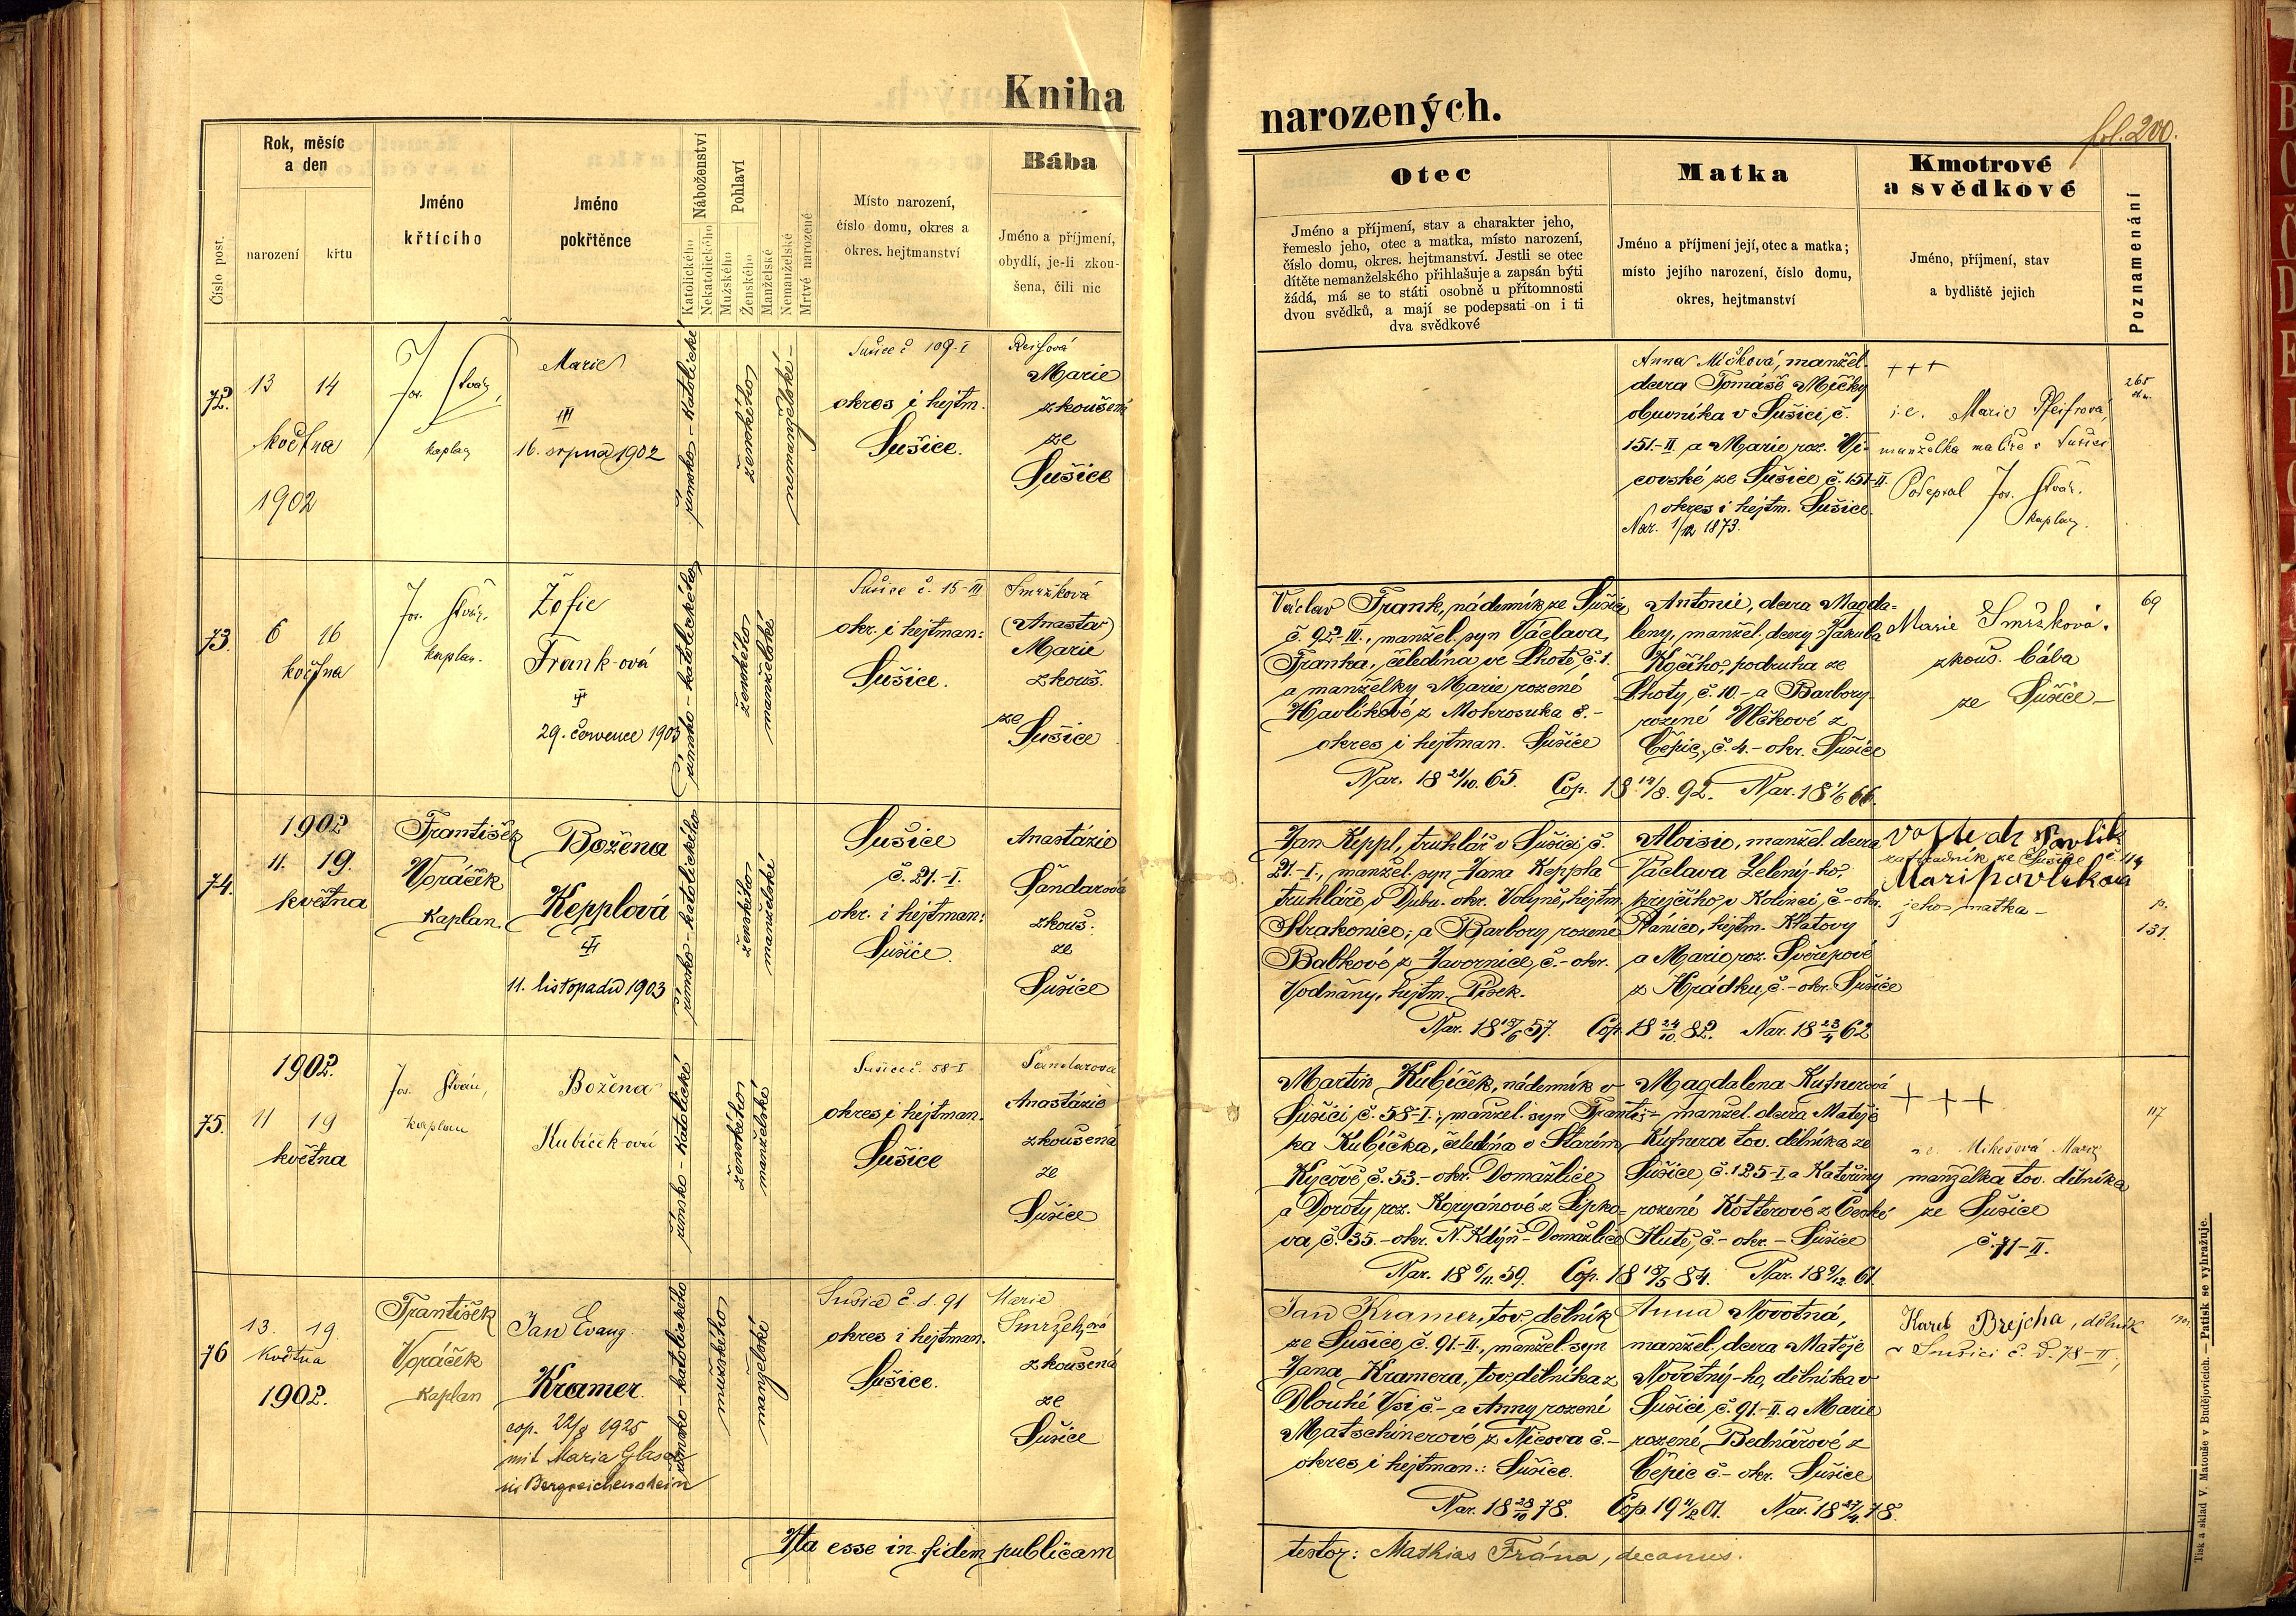 Kniha
narozených.
fol. 200.
Číslo post.
Rok, měsíc
a den
narození
křtu
Jméno
křtícího
Jméno
pokřtěnce
Náboženství
Katolického
Nekatolického
Pohlaví
Mužského
Ženského
Manželské
Nemanželské
Mrtvé narozené
Místo narození,
číslo domu, okres a
okres. hejtmanství
Bába
Jméno a příjmení,
obydlí, je-li zkou-
šena, čili nic
Otec
Jméno a příjmení, stav a charakter jeho,
řemeslo jeho, otec a matka, místo narození,
číslo domu, okres. hejtmanství. Jestli se otec
dítěte nemanželského přihlašuje a zapsán býti
žádá, má se to státi osobně u přítomnosti
dvou svědků, a mají se podepsati on i ti
dva svědkové
Matka
Jméno a příjmení její, otec a matka;
místo jejího narození, číslo domu,
okres, hejtmanství
Kmotrové
a svědkové
Jméno, příjmení, stav
a bydliště jejich
Poznamenání
72.
13 14
května
1902
Jos.
kaplan
Marie
III
16. srpna 1902
římsko-katolické
ženského
nemanželské
Sušice č. 109-I
okres i hejtm.
Sušice.
Marie
zkoušená
ze
Sušice
Anna Míčková, manžel.
dcera Tomáše Míčky
obuvníka v Sušici, č.
151-II a Marie roz. Vi-
covské ze Sušice č. 151-II.
okres i hejtm. Sušice.
Nar. 1/12 1873.
+++
i.e. Marie Pfeifrová,
manželka malíře v Sušici
Podepsal Jos.
kaplan.
265
73.
6 16
května
Jos.
kaplan.
Žofie
Frank-ová
29. července 1903
římsko-katolického
ženského
manželské
Sušice č. 15-III
okr. i hejtman:
Sušice.
Smržková
(Anasta)
Marie
zkouš.
ze
Sušice
Václav Frank, nádenník ze Sušice
č. 92-III., manžel. syn Václava,
Franka, čeledína ve Lhotě, č. 1.
a manželky Marie rozené
Havlíkové z Mokrosuka č.-
okres i hejtman. Sušice
Nar. 18 21/10. 65. Cop. 18 /8. 92. Nar. 18 1/6 66.
Antonie, dcera Magda-
leny, manžel. dcery Jakuba
Kočího, podruha ze
Lhoty, č. 10.- a Barbory
rozené Vlčkové z
Čepic, č. 4.- okr. Sušice
Marie Smržková.
zkouš. bába
ze Sušice-
69
74.
1902
11. 19.
května
František
Voráček
Kaplan.
Božena
Kepplová
11. listopadu 1903
římsko-katolického
ženského
manželské
Sušice
č. 21.-I.
okr. i hejtman:
Sušice.
Anastázie
Šandarová
zkouš.
ze
Sušice
Jan Keppl, truhlář v Sušici, č.
21-I., manžel. syn Jana Keppla
truhláře v Dubu. okr. Volyně, hejtm.
Strakonice; a Barbory rozené
Babkové z Javornice, č.- okr.
Vodňany, hejtm. Písek.
Nar. 18 /6 57. Cop. 18 24/10. 82. Nar. 18 23/4 62
Aloisie, manžel. dcera
Václava Zelený-ho,
krejčího v Kolinci, č.- okr.
Plánice, hejtm. Klatovy
a Marie roz. Svěřepové
z Hrádku, č.- okr. Sušice
Vojtěch Pavlik
zahradník ze Sušice č. 44
Mari Pavlikova
jeho matka-
p.
131.
75.
1902.
11 19
května
Jos.
kaplan
Božena
Kubíček-ová
římsko-katolické
ženského
manželské
Sušice č. 58-I
okres i hejtman.
Sušice
Šandarova
Anastázie
zkoušená
ze
Sušice
Martin Kubíček, nádenník v
Sušici, č. 58-I., manžel. syn Františ-
ka Kubíčka, čeledína v Starém
Kyčově, č. 53.- okr. Domažlice
a Doroty, roz. Koryánové z Lipko-
va, č. 35.- okr. N. Kdýň - Domažlice
Nar. 18 6/11. 59. Cop. 18 /5 84. Nar. 18 9/12. 61.
Magdalena Kufnerová
manžel. dcera Matěje
Kufnera tov. dělníka ze
Sušice, č. 125-I a Kateřiny
rozené Kotterové z České
Hutě, č.- okr.- Sušice
+++
Mikešová Marie
manželka tov. dělníka
ze Sušice
č. 71-II.
117
76
13. 19.
Května
1902.
František
Voráček
Kaplan
Jan Evang.
Kramer.
cop. 22/8 1925
mit Maria Glaser
in Bergreichenstein
římsko-katolického
mužského
manželské
Sušice č. d. 91
okres i hejtman.
Sušice.
Marie
zkoušená
ze
Sušice
Jan Kramer, tov. dělník
ze Sušice č. 91.-II., manžel. syn
Jana Kramera, tov. dělníka z
Dlouhé Vsi č.- a Anny rozené
Matschinerové z Nicova č.-
okres i hejtman.: Sušice.
Nar. 18 23/10 78. Cop. 19 11/2 01. Nar. 18 27/4. 78.
Anna Novotná,
manžel. dcera Matěje
Novotný-ho, dělníka v
Sušici, č. 91.-II. a Marie
rozené Bednářové z
Čepic č.- okr. Sušice
Karel Brejcha, dělník
v Sušici č. d. 78-II.,
Ita esse in fidem publicam
testor: Mathias Frána, decanus.
Tisk a sklad V. Matouše v Budějovicích. — Patisk se vyhražuje.